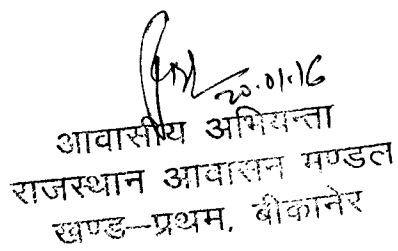 20.01.16
आवासीय अभियन्ता
राजस्थान आवासन मण्डल
खण्ड-प्रथम, बीकानेर